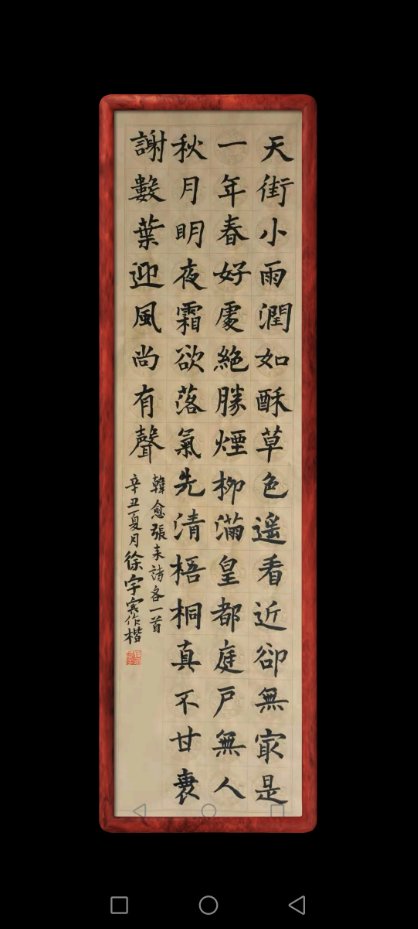 天街小雨潤如酥草色遥看近卻無冣是
一年春好處絶勝煙柳滿皇都庭戶無人
秋月明夜霜欲落氣先清梧桐真不甘衰
謝數葉迎風尚有聲
韓愈張耒詩各一首
辛丑夏月徐宇作楷